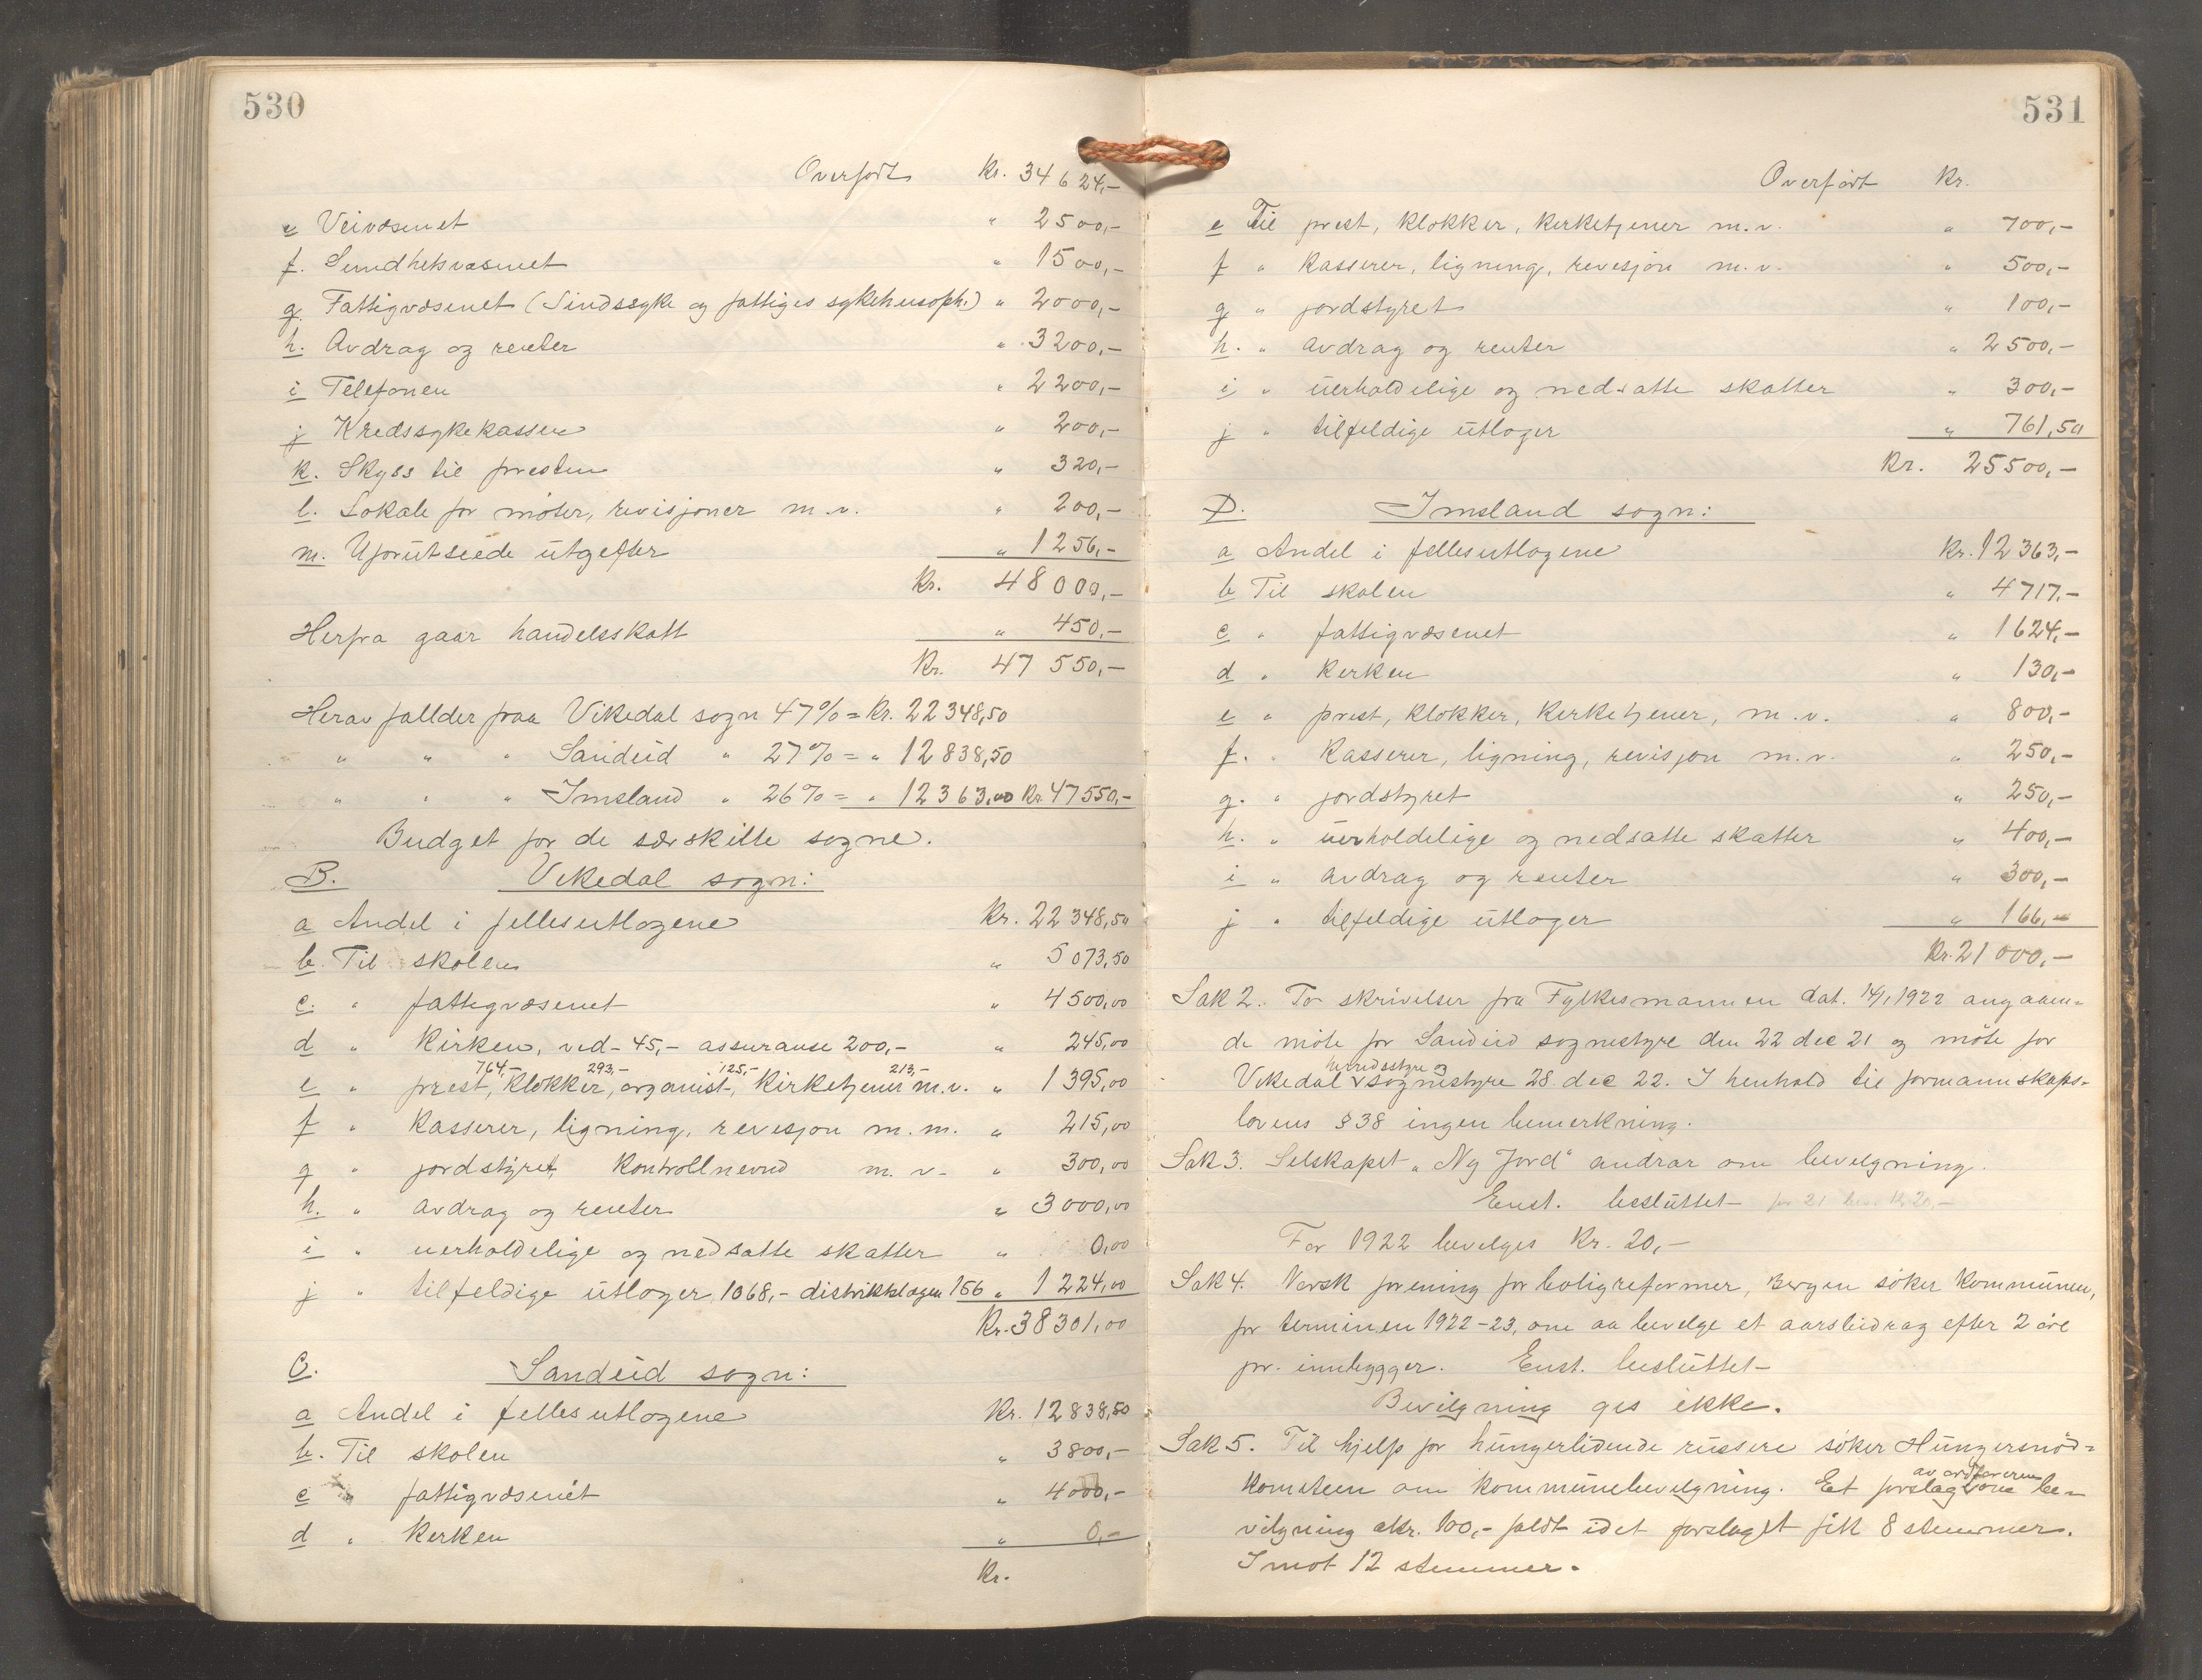 530
Overført Kr. 34 624,-
e Veivæsenet " 2500,-
f. Sundhetsvæsenet " 1500,-
g. Fattigvæsenet (Sindssyke og fattiges sykehusoph.) " 2000,-
h. Avdrag og renter " 3200,-
i Telefonen " 2200,-
j Kredssykekassen " 200,-
k. Skyss til presten " 320,-
l. Lokale for møter, revisjoner m.v. " 200,-
m. Uforutseede utgefter " 1256,-
Kr. 48000,-
Herfra gaar handelsskatt " 450,-
Kr. 47 550,-
Herav fallder paa Vikedal sogn 47% = Kr. 22348,50
" " " Sandeid " 27% = " 12838,50
" " " Imsland " 26% = " 12363,00 Kr. 47550,-
Budget for de særskilte sogne.
B. Vikedal sogn:
a Andel i fellesutlogene Kr. 22348,50
b. Til skolen " 5073,50
c. " fattigvæsenet " 4500,00
d " Kirken, ved - 45,- assuranse 200,- " 245,00
764,- 293,- 125,- 213,-
e " prest, klokker, organist, kirketjener m.v. " 1395,00
f " Kasserer, ligning, revesjon m.m. " 215,00
g " jordstyret, Kontrollnevnd m. v. " 300,00
h. " avdrag og renter " 3000,00
i " uerholdelige og nedsatte skatter " 0,00
j " tilfeldige utloger 1068,- distriktslogen 156 " 1224,00
Kr. 38301,00
C. Sandeid sogn:
a Andel i fellesutlogene Kr. 12838,50
b. Til skolen " 3800,-
c " fattigvæsenet " 4000,-
d " Kerken " 0,-
Kr.
531
Overført Kr.
e Til prest, klokker, kerketjener m.v. " 700,-
f " Kasserer, ligning, revesjon m.v. " 500,-
g " jordstyret " 100,-
h. " avdrag og renter " 2500,-
i " uerholdelige og nedsatte skatter " 300,-
j " tilfeldige utloger " 761,50
Kr. 25500,-
D. Imsland sogn:
a Andel i fellesutlogene Kr. 12363,-
b Til skolen " 4717,-
c " fattigvæsenet " 1624,-
d " Kerken " 130,-
e " prest, klokker, kerketjener, m.v. " 800,-
f. " Kasserer, ligning, revisjon m.v. " 250,-
g. " jordstyret " 250,-
h. " uerholdelige og nedsatte skatter " 400,-
i " avdrag og renter " 300,-
j " tilfeldige utloger " 166,-
Kr. 21000,-
Sak 2. To skrivelser fra Fylkesmannen dat. 14/1 1922 angaaen-
de møte for Sandeid sognestyre den 22 dec 21 og møte for
herredsstyre og
Vikedal sognestyre 28. dec 22. I henhold til formannskaps-
lovens § 38 ingen bemerkning.
Sak 3. Selskapet "Ny Jord" andrar om bevelgning.
Enst. besluttet
For 1922 bevelges Kr. 20,-
Sak 4. Norsk forening for boligreformer, Bergen søker kommunen,
for terminen 1922-23, om aa bevelge et aarsbidrag efter 2 øre
pr. innbygger. Enst. besluttet
Bevilgning ges ikke.
Sak 5. Til hjelp for hungerlidende russere søker Hungersnød-
av ordføreren
komiteen om kommunebevelgning. Et forslag om be-
vilgning kr. 100,- faldt idet forslaget fik 8 stemmer.
Imot 12 stemmer.